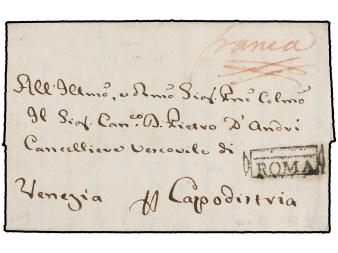 franca
All'Illmo, e Rmo Sigr Pne Colmo
Il Sigr Canco D. Pietro D'Andri
Cancelliere Vescovile di
ROMA
Venezia Capodistria